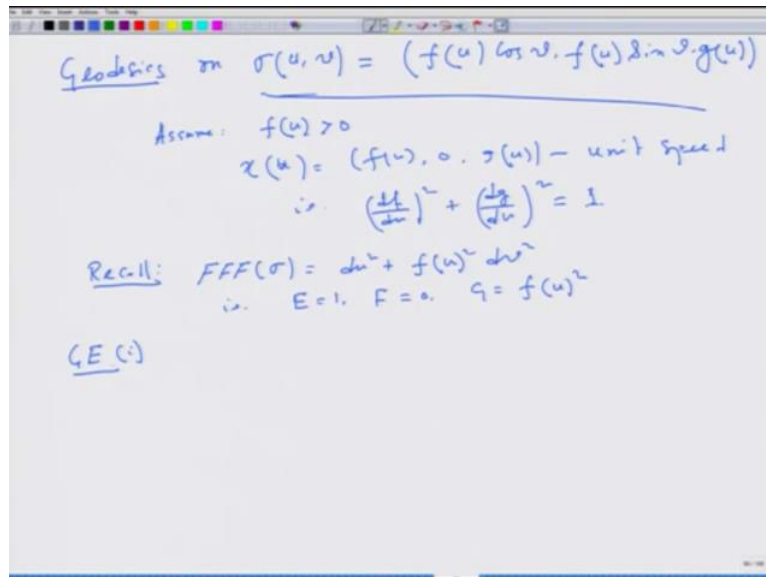 Geodesics on σ(u, v) = (f(u) Cos v, f(u) Sin v, g(u))
Assume: f(u) > 0
x(u) = (f(u), 0, g(u)) - unit speed
i.e. (df/du)² + (dg/du)² = 1
Recall: FFF(σ) = du² + f(u)² dv²
i.e. E = 1, F = 0, G = f(u)²
GE (i)